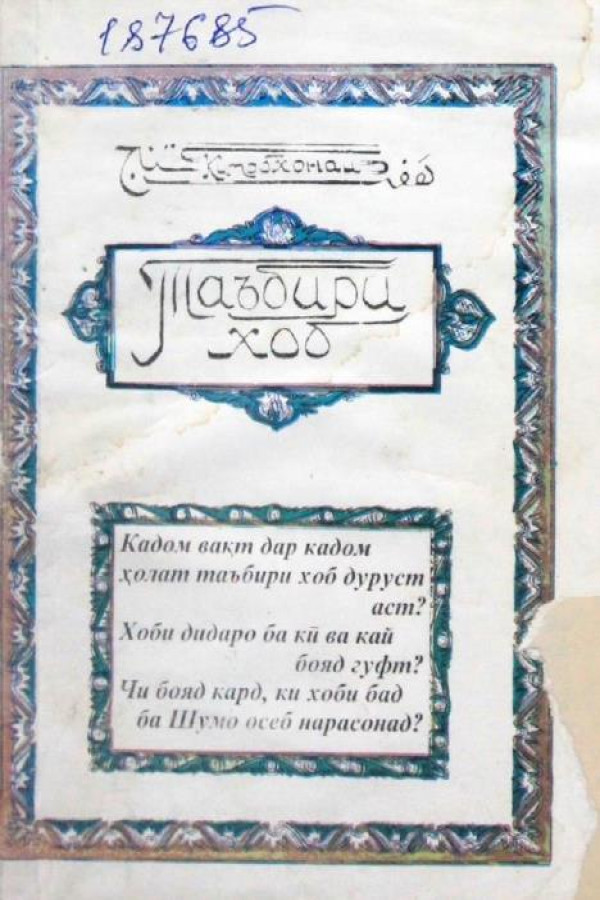 187685
Китобхонаи
Таъбири
хоб
Кадом вақт дар кадом
ҳолат таъбири хоб дуруст
аст?
Хоби дидаро ба кӣ ва кай
бояд гуфт?
Чи бояд кард, ки хоби бад
ба Шумо осеб нарасонад?